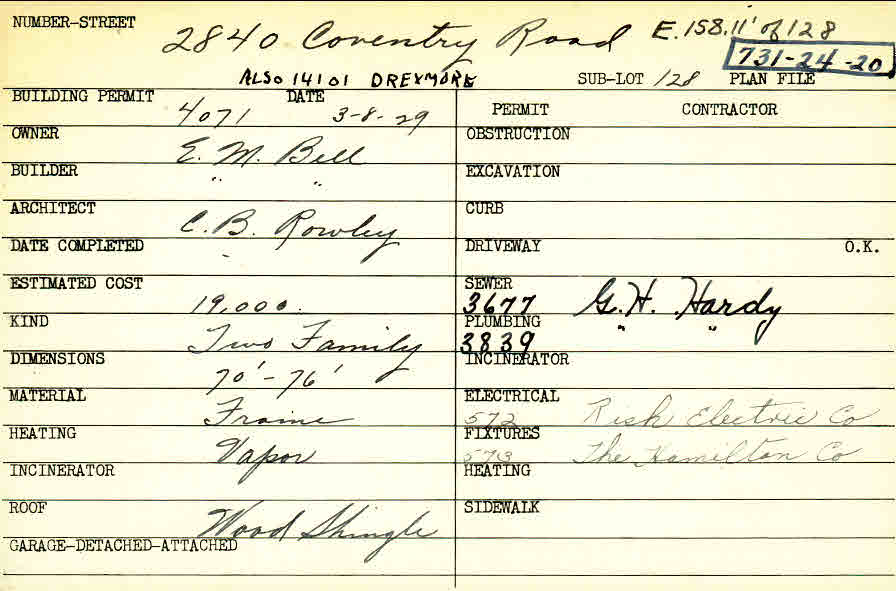 NUMBER-STREET 2840 Coventry Road E. 158.11' of 128
731-24-20
ALSO 14101 DREXMORE SUB-LOT 128 PLAN FILE
BUILDING PERMIT 4071 DATE 3-8-29
OWNER E. M. Bell
BUILDER " "
ARCHITECT C. B. Rowley
DATE COMPLETED
ESTIMATED COST 19,000.
KIND Two Family
DIMENSIONS 70'-76'
MATERIAL Frame
HEATING Vapor
INCINERATOR
ROOF Wood Shingle
GARAGE-DETACHED-ATTACHED
PERMIT CONTRACTOR
OBSTRUCTION
EXCAVATION
CURB
DRIVEWAY O.K.
SEWER 3677 G.H. Hardy
PLUMBING 3839 " "
INCINERATOR
ELECTRICAL 572 Rish Electric Co
FIXTURES 573 The Hamilton Co
HEATING
SIDEWALK